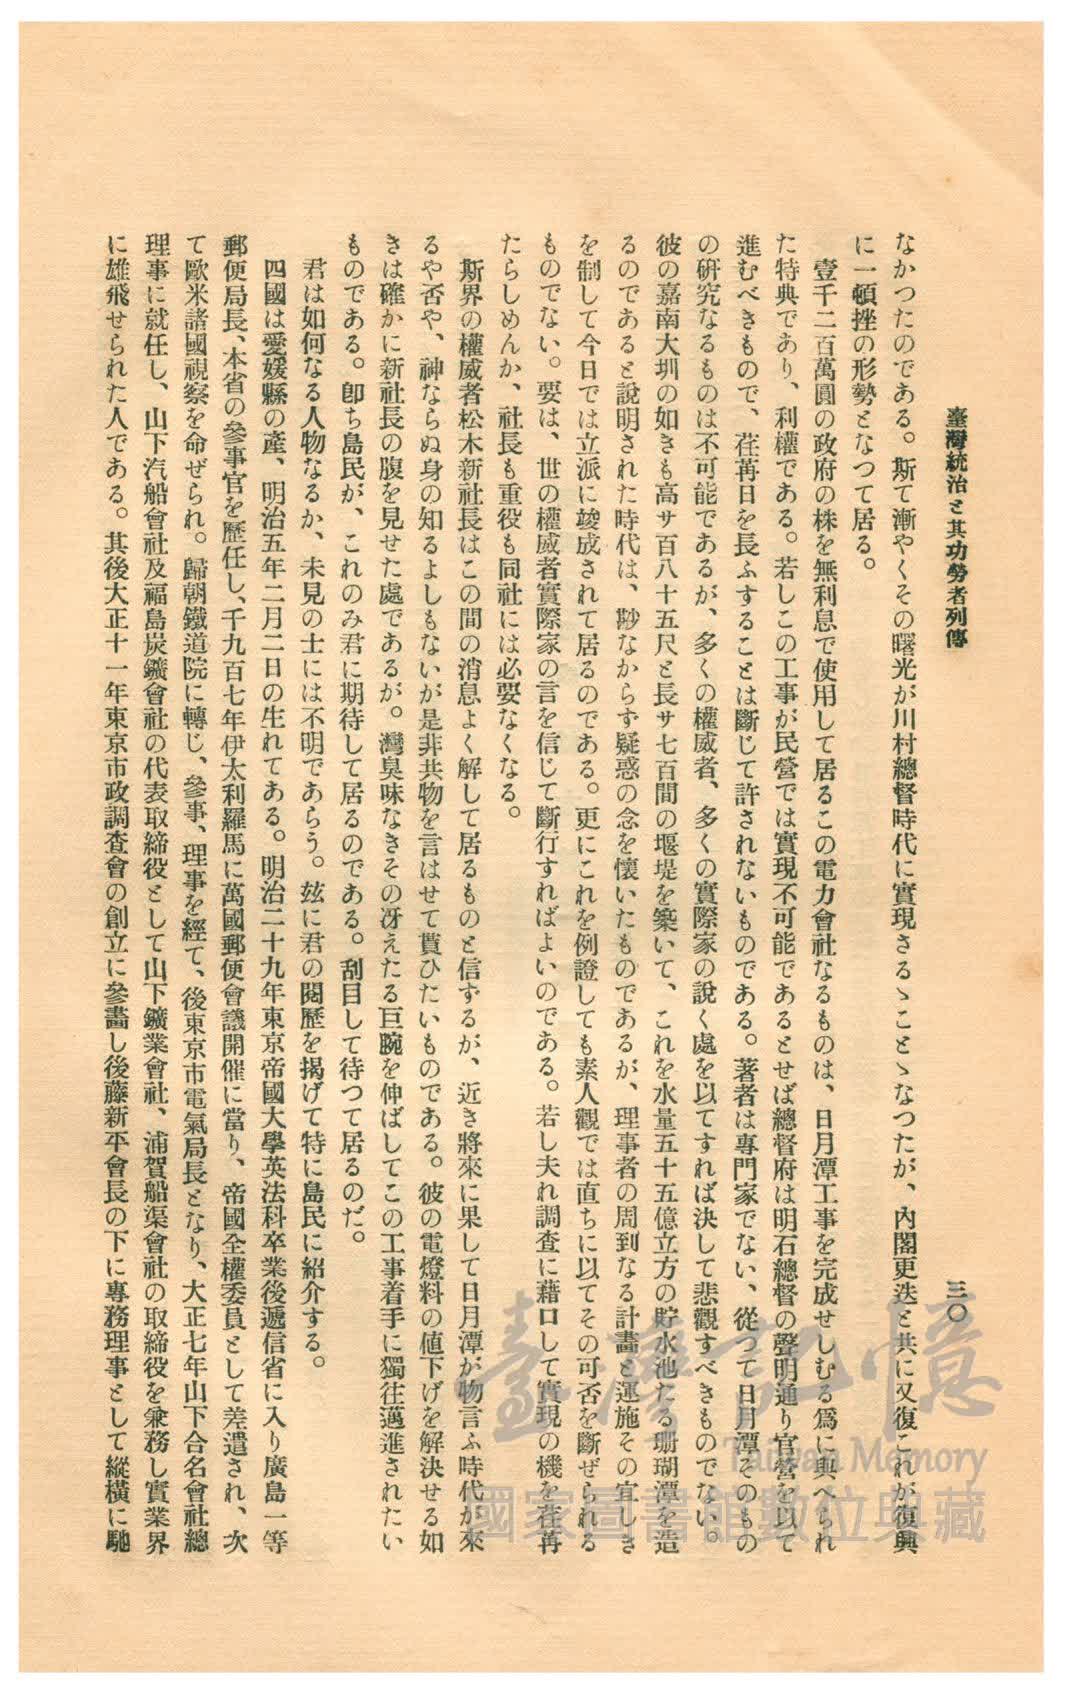 臺灣統治と其功勞者列傳
三〇
なかつたのである。斯て漸やくその曙光が川村總督時代に實現さるゝことゝなつたが、內閣更迭と共に又復これが復興
に一頓挫の形勢となつて居る。
壹千二百萬圓の政府の株を無利息で使用して居るこの電力會社なるものは、日月潭工事を完成せしむる爲に與へられ
た特典であり、利權である。若しこの工事が民營では實現不可能であるとせば總督府は明石總督の聲明通り官營を以て
進むべきもので、荏苒日を長ふすることは斷じて許されないものである。著者は專門家でない、從つて日月潭そのもの
の硏究なるものは不可能であるが、多くの權威者、多くの實際家の說く處を以てすれば決して悲觀すべきものでない。
彼の嘉南大圳の如きも高サ百八十五尺と長サ七百間の堰堤を築いて、これを水量五十五億立方の貯水池たる珊瑚潭を造
るのであると說明された時代は、尠なからず疑惑の念を懷いたものであるが、理事者の周到なる計畫と運施その宜しき
を制して今日では立派に竣成されて居るのである。更にこれを例證しても素人觀では直ちに以てその可否を斷ぜられる
ものでない。要は、世の權威者實際家の言を信じて斷行すればよいのである。若し夫れ調査に藉口して實現の機を荏苒
たらしめんか、社長も重役も同社には必要なくなる。
斯界の權威者松木新社長はこの間の消息よく解して居るものと信ずるが、近き將來に果して日月潭が物言ふ時代が來
るや否や、神ならぬ身の知るよしもないが是非共物を言はせて貰ひたいものである。彼の電燈料の値下げを解決せる如
きは確かに新社長の腹を見せた處であるが。灣臭味なきその冴えたる巨腕を伸ばしてこの工事着手に獨往邁進されたい
ものである。卽ち島民が、これのみ君に期待して居るのである。刮目して待つて居るのだ。
君は如何なる人物なるか、未見の士には不明であらう。玆に君の閱歷を揭げて特に島民に紹介する。
四國は愛媛縣の產、明治五年二月二日の生れてある。明治二十九年東京帝國大學英法科卒業後遞信省に入り廣島一等
郵便局長、本省の參事官を歷任し、千九百七年伊太利羅馬に萬國郵便會議開催に當り、帝國全權委員として差遣され、次
て歐米諸國視察を命ぜられ。歸朝鐵道院に轉じ、參事、理事を經て、後東京市電氣局長となり、大正七年山下合名會社總
理事に就任し、山下汽船會社及福島炭鑛會社の代表取締役として山下鑛業會社、浦賀船渠會社の取締役を兼務し實業界
に雄飛せられた人である。其後大正十一年東京市政調查會の創立に參畵し後藤新平會長の下に專務理事として縱橫に馳
臺灣記憶
Taiwan Memory
國家圖書館數位典藏